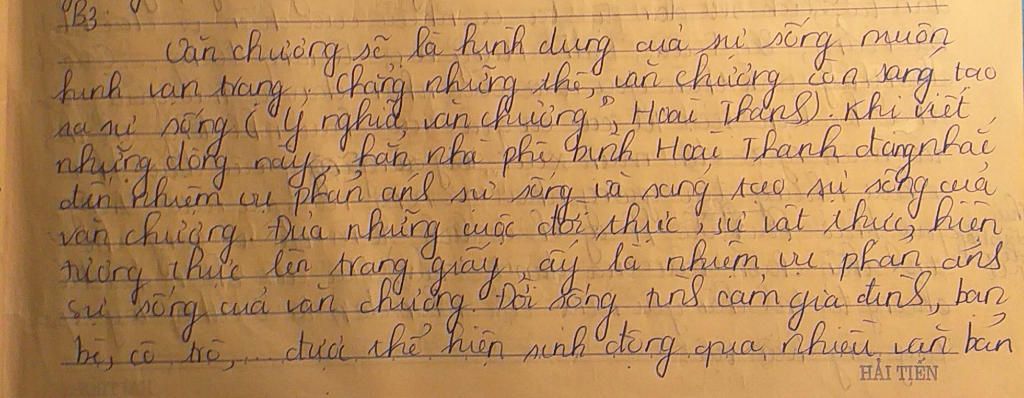 B3:
Văn chương sẽ là hình dung của sự sống muôn
hình vạn trạng, chẳng những thế, văn chương còn sáng tạo
ra sự sống ("Ý nghĩa văn chương", Hoài Thanh). Khi viết
những dòng này, hẳn nhà phê bình Hoài Thanh đang nhắc
đến nhiệm vụ phản ánh sự sống và sáng tạo sự sống của
văn chương. Đưa những cuộc đời thực, sự vật thực, hiện
tượng thực lên trang giấy, ấy là nhiệm vụ phản ánh
sự sống của văn chương. Đời sống tình cảm gia đình, bạn
bè, cô trò,... được thể hiện sinh động qua nhiều văn bản
HẢI TIẾN